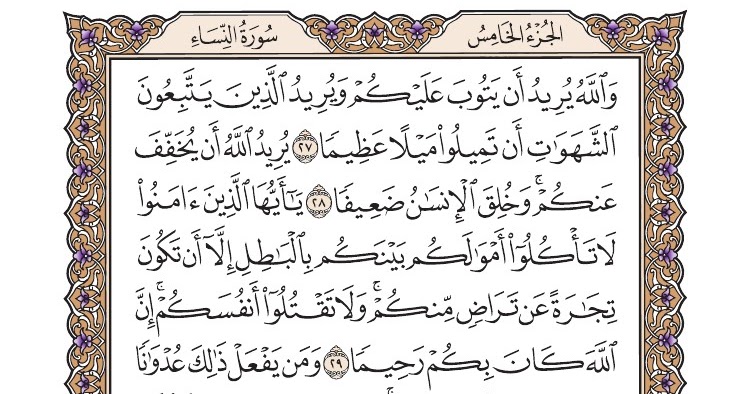 الجُزْءُ الخَامِسُ
سُورَةُ النِّسَاءِ
وَٱللَّهُ يُرِيدُ أَن يَتُوبَ عَلَيْكُمْ وَيُرِيدُ ٱلَّذِينَ يَتَّبِعُونَ
ٱلشَّهَوَٰتِ أَن تَمِيلُوا۟ مَيْلًا عَظِيمًا ٢٧ يُرِيدُ ٱللَّهُ أَن يُخَفِّفَ
عَنكُمْ ۚ وَخُلِقَ ٱلْإِنسَٰنُ ضَعِيفًا ٢٨ يَٰٓأَيُّهَا ٱلَّذِينَ ءَامَنُوا۟
لَا تَأْكُلُوٓا۟ أَمْوَٰلَكُم بَيْنَكُم بِٱلْبَٰطِلِ إِلَّآ أَن تَكُونَ
تِجَٰرَةً عَن تَرَاضٍ مِّنكُمْ ۚ وَلَا تَقْتُلُوٓا۟ أَنفُسَكُمْ ۚ إِنَّ
ٱللَّهَ كَانَ بِكُمْ رَحِيمًا ٢٩ وَمَن يَفْعَلْ ذَٰلِكَ عُدْوَٰنًا